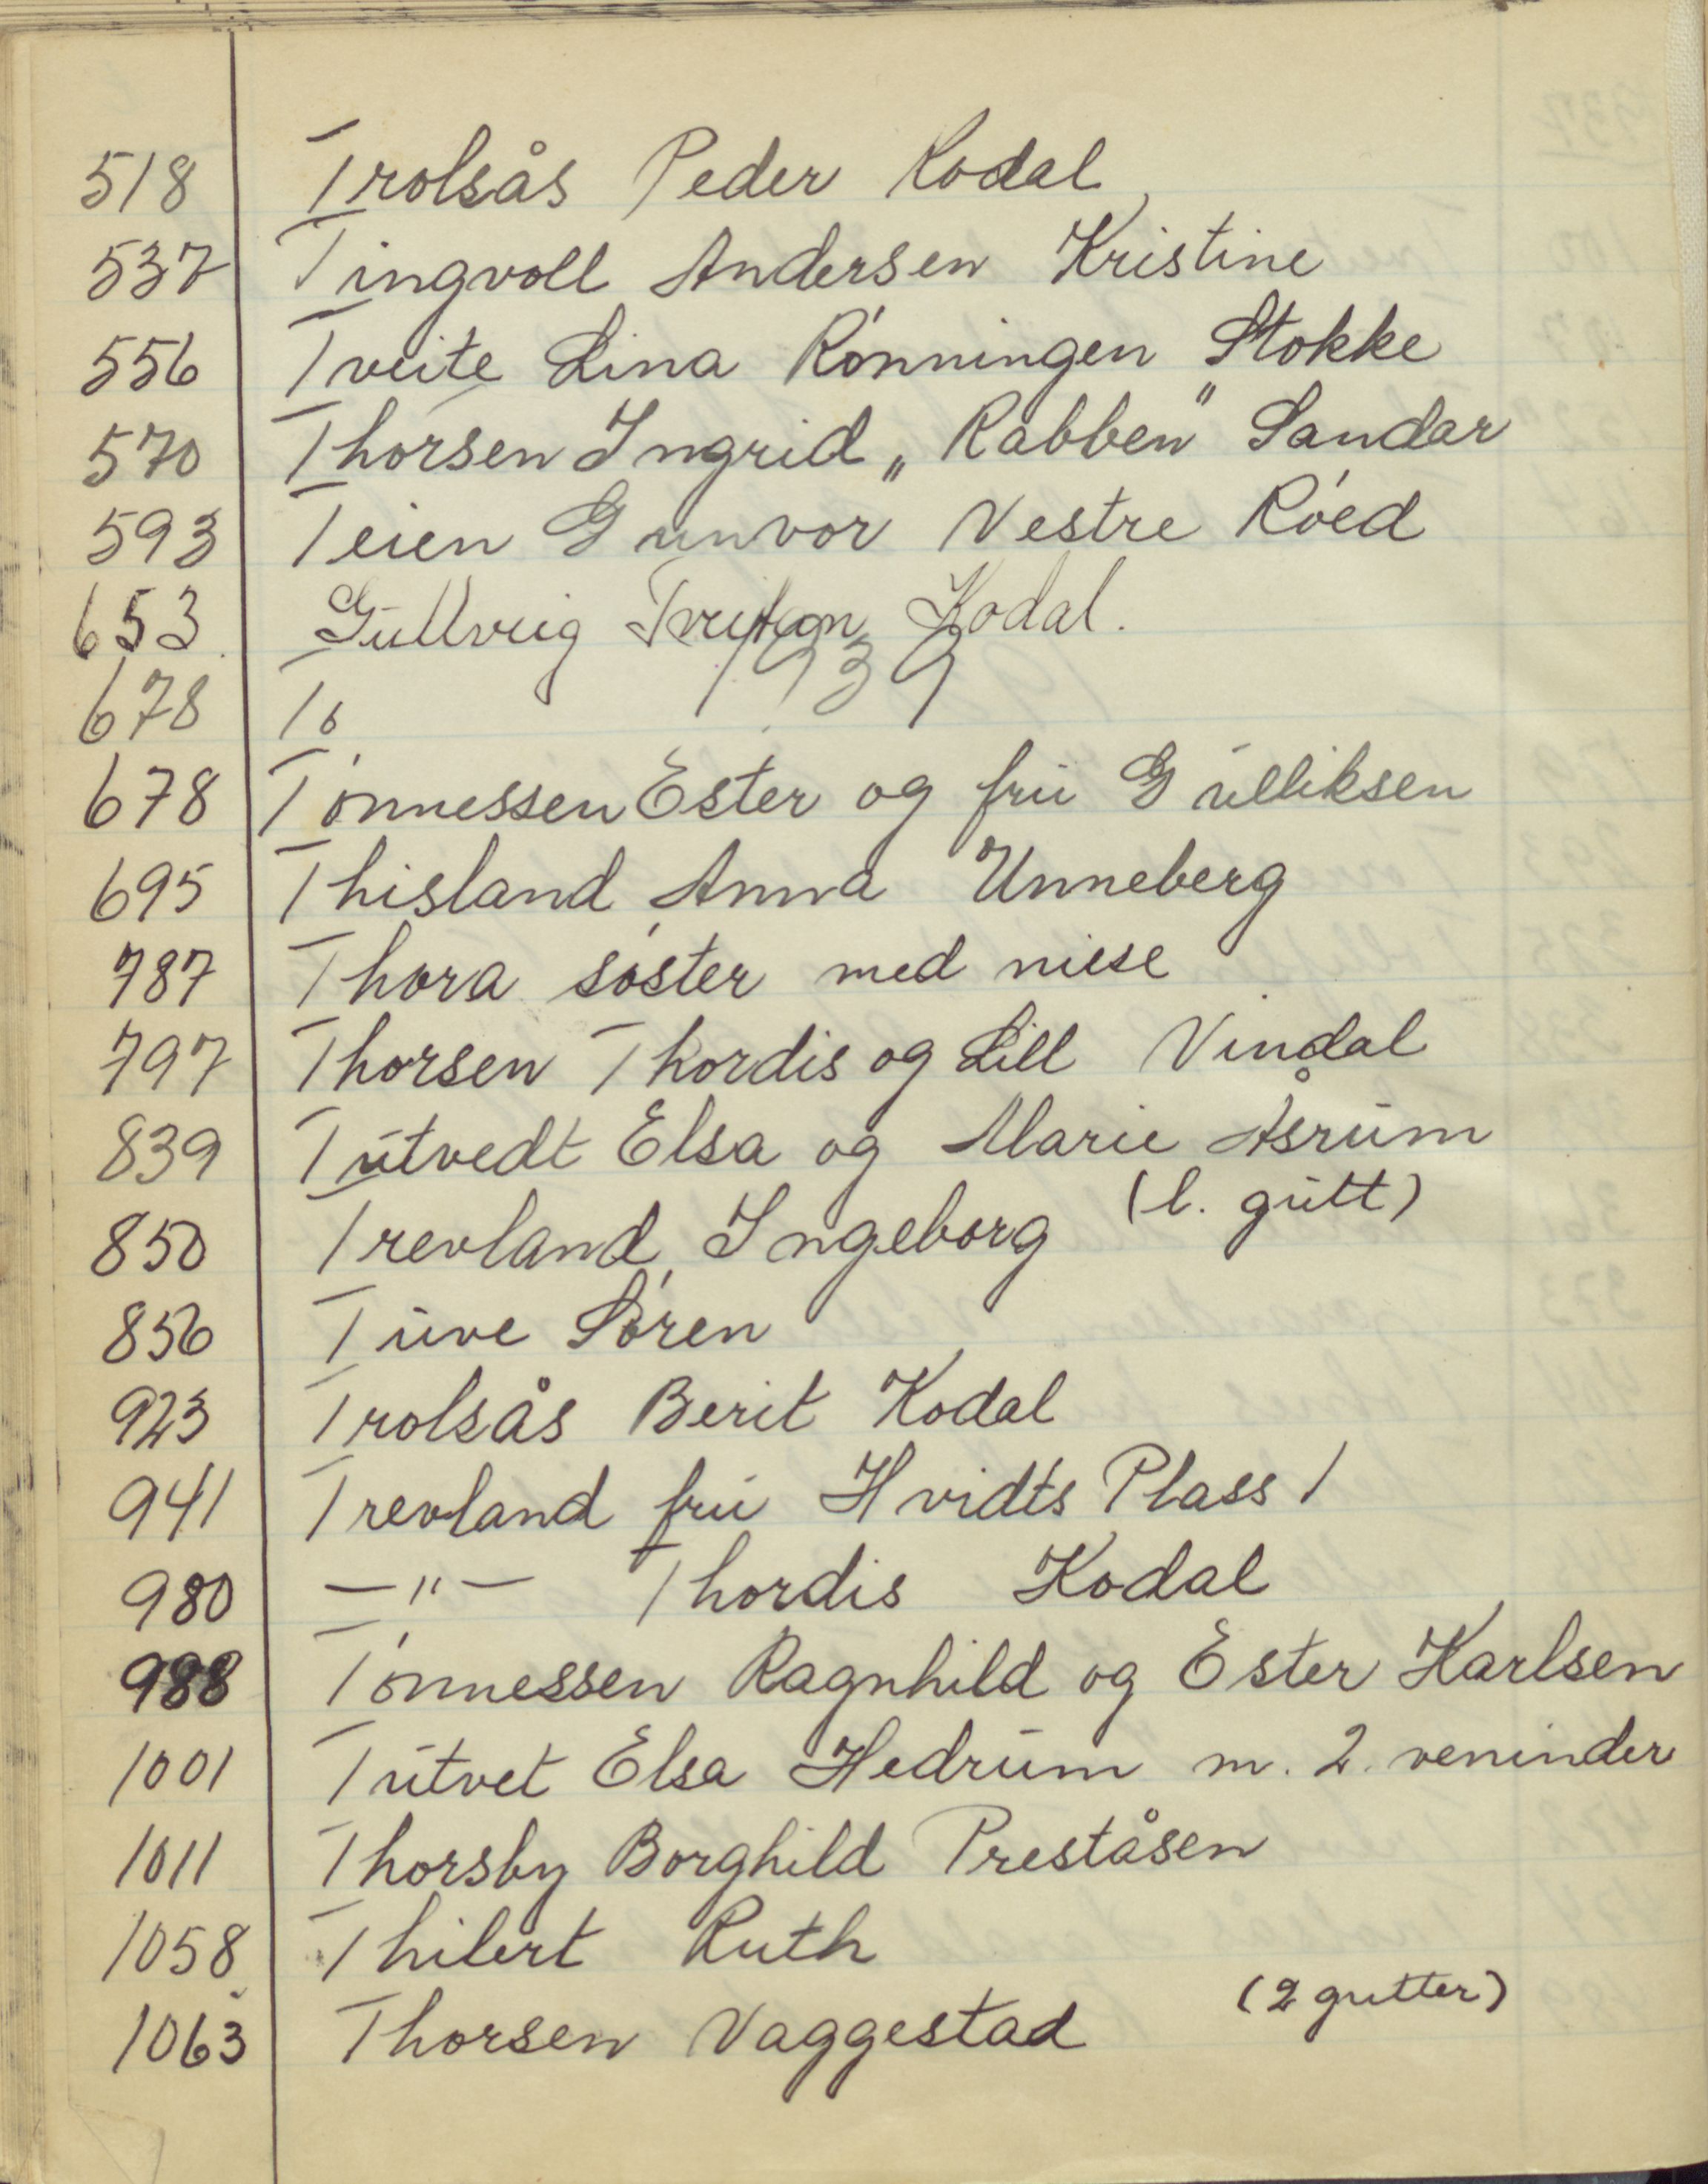 518 Trolsås Peder Kodal
537 Tingvoll Andersen Kristine
556 Tveite Lina Rønningen Stokke
570 Thorsen Ingrid „Rabben" Sandar
593 Teien Gunvor Vestre Røed
653 Gullveig Kodal.
1939
678 Tø
678 Tønnessen Ester og fru Gulliksen
695 Thisland Anna Unneberg
787 Thora søster med niese
797 Thorsen Thordis og Lill Vindal
839 Tutvedt Elsa og Marie Åsrum
850 Trevland Ingeborg (l. gutt)
856 Tuve Søren
923 Trolsås Berit Kodal
941 Trevland fru Hvidts Plass 1
980 —"— Thordis Kodal
988 Tønnessen Ragnhild og Ester Karlsen
1001 Tutvet Elsa Hedrum m. 2. veninder
1011 Thorsby Borghild Preståsen
1058 Thilert Ruth
1063 Thorsen Vaggestad (2 gutter)